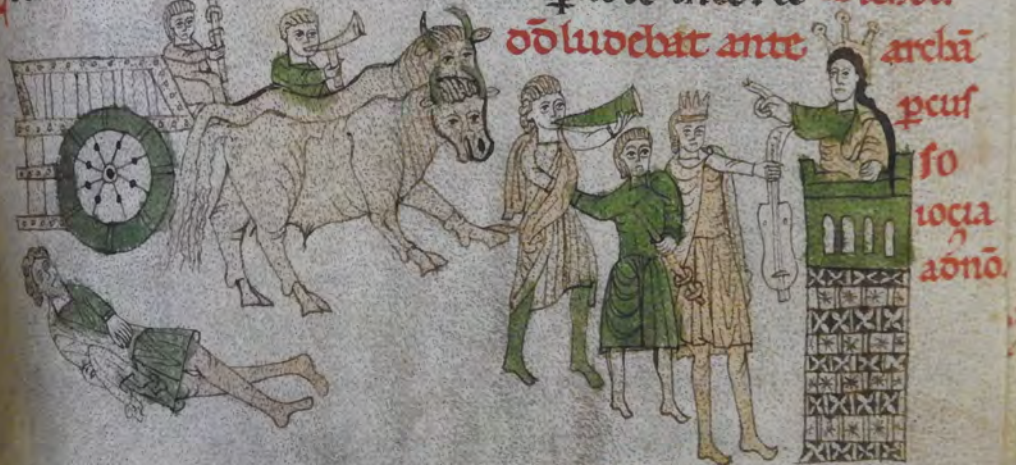 dd̄ ludebat ante archā
ꝑcuſ
ſo
iocia
adn̄o.